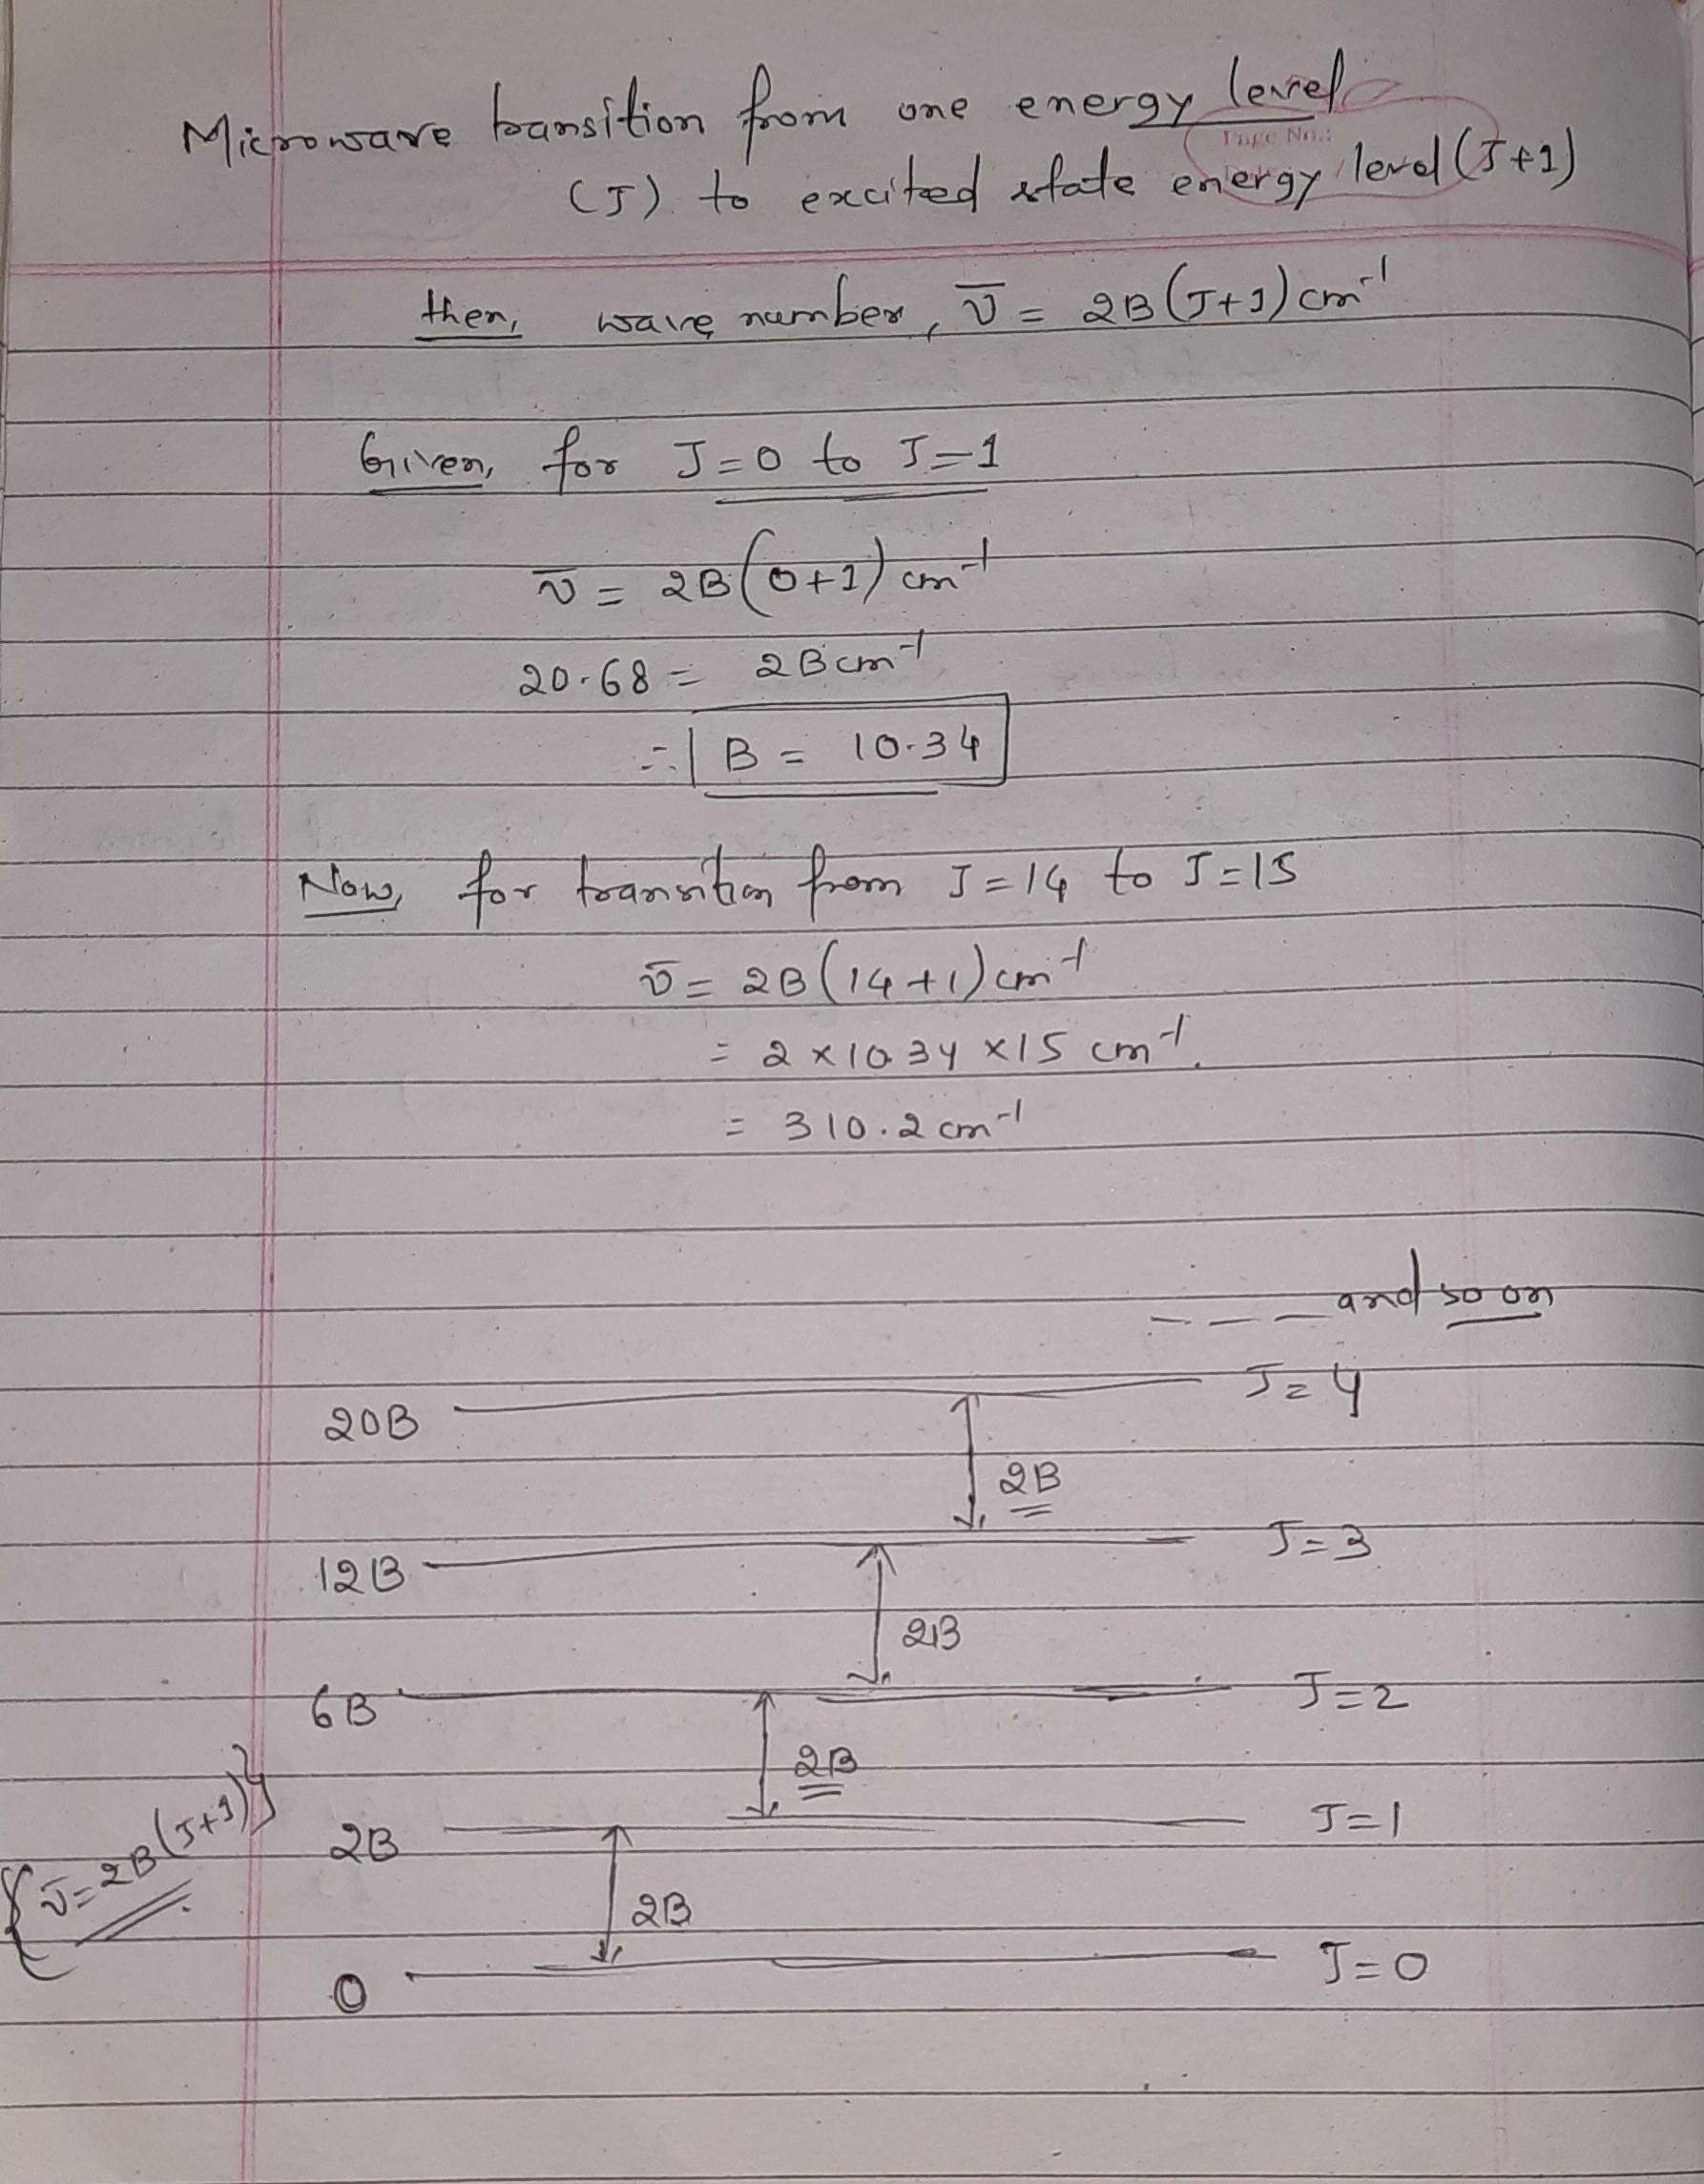 Microwave transition from one energy level
Page No.:
(J) to excited state energy level (J+1)
then, wave number, ν̅ = 2B(J+1) cm⁻¹
Given, for J=0 to J=1
ν̅ = 2B(0+1) cm⁻¹
20.68 = 2B cm⁻¹
∴ B = 10.34
Now, for transition from J=14 to J=15
ν̅ = 2B(14+1) cm⁻¹
= 2 × 10.34 × 15 cm⁻¹.
= 310.2 cm⁻¹
--- and so on
20B J=4
2B
12B J=3
2B
6B J=2
2B
{ν̅=2B(J+1)}
2B J=1
2B
0 J=0